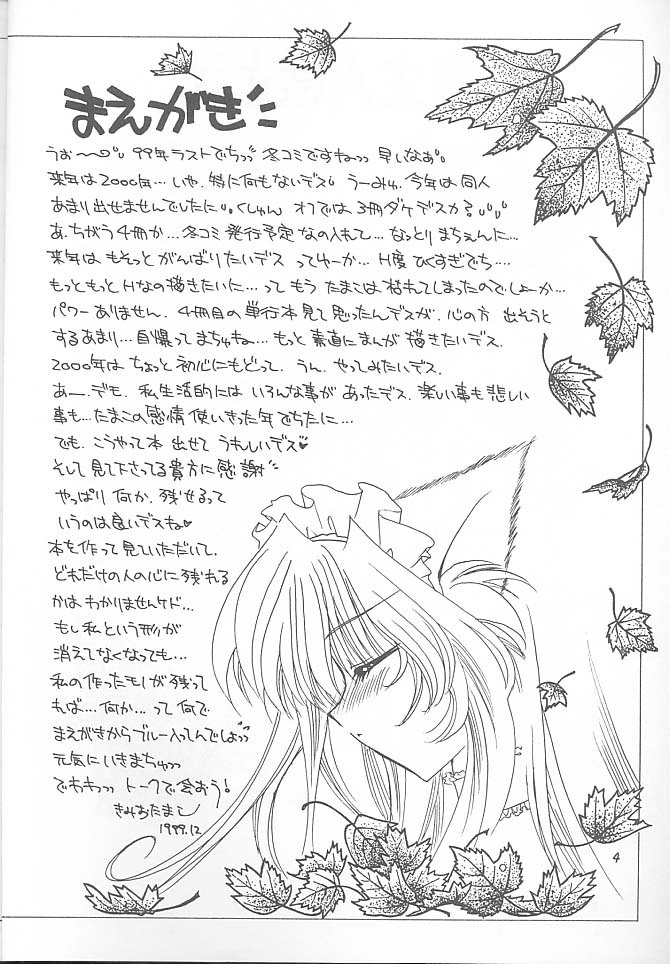 まえがき
うぉ〜っ 99年ラストでちっ 冬コミですねっっ 早いなあ。
来年は2000年… いや、特に何もないデス うーみゅ、今年は同人
あまり出せませんでしたに。くしゅん オフでは3冊ダケデスカ?
あ、ちがう4冊か… 冬コミ発行予定なの入れて… なっとりまちぇんに…
来年はもそっとがんばりたいデス ってゆーか… H度ひくすぎでち…
もっともっとHなの描きたいに… ってもう たまこは枯れてしまったのでしょーか…
パワーありません。4冊目の単行本見て思ったんデスが、心の方 出そうと
するあまり… 自爆ってまちゅね… もっと素直にまんが描きたいデス。
2000年はちょっと初心にもどって。うん。やってみたいデス。
あー、デモ、私生活的にはいろんな事があったデス。楽しい事も悲しい
事も…たまこの感情使いきった年でちたに…
でも、こうやって本 出せて うれしいデス♥
そして見て下さってる貴方に感謝
やっぱり何か、残せるって
いうのは良いデスね♥
本を作って見ていただいて、
どれだけの人の心に残れる
かはわかりませんケド…
もし私という形が
消えてなくなっても…
私の作ったモノが残って
れば…何か… って何で
まえがきからブルー入ってんでしょっ
元気にいきまちゅっ
でわわっっ トークで会おう!
きみおたまこ
1999.12
4